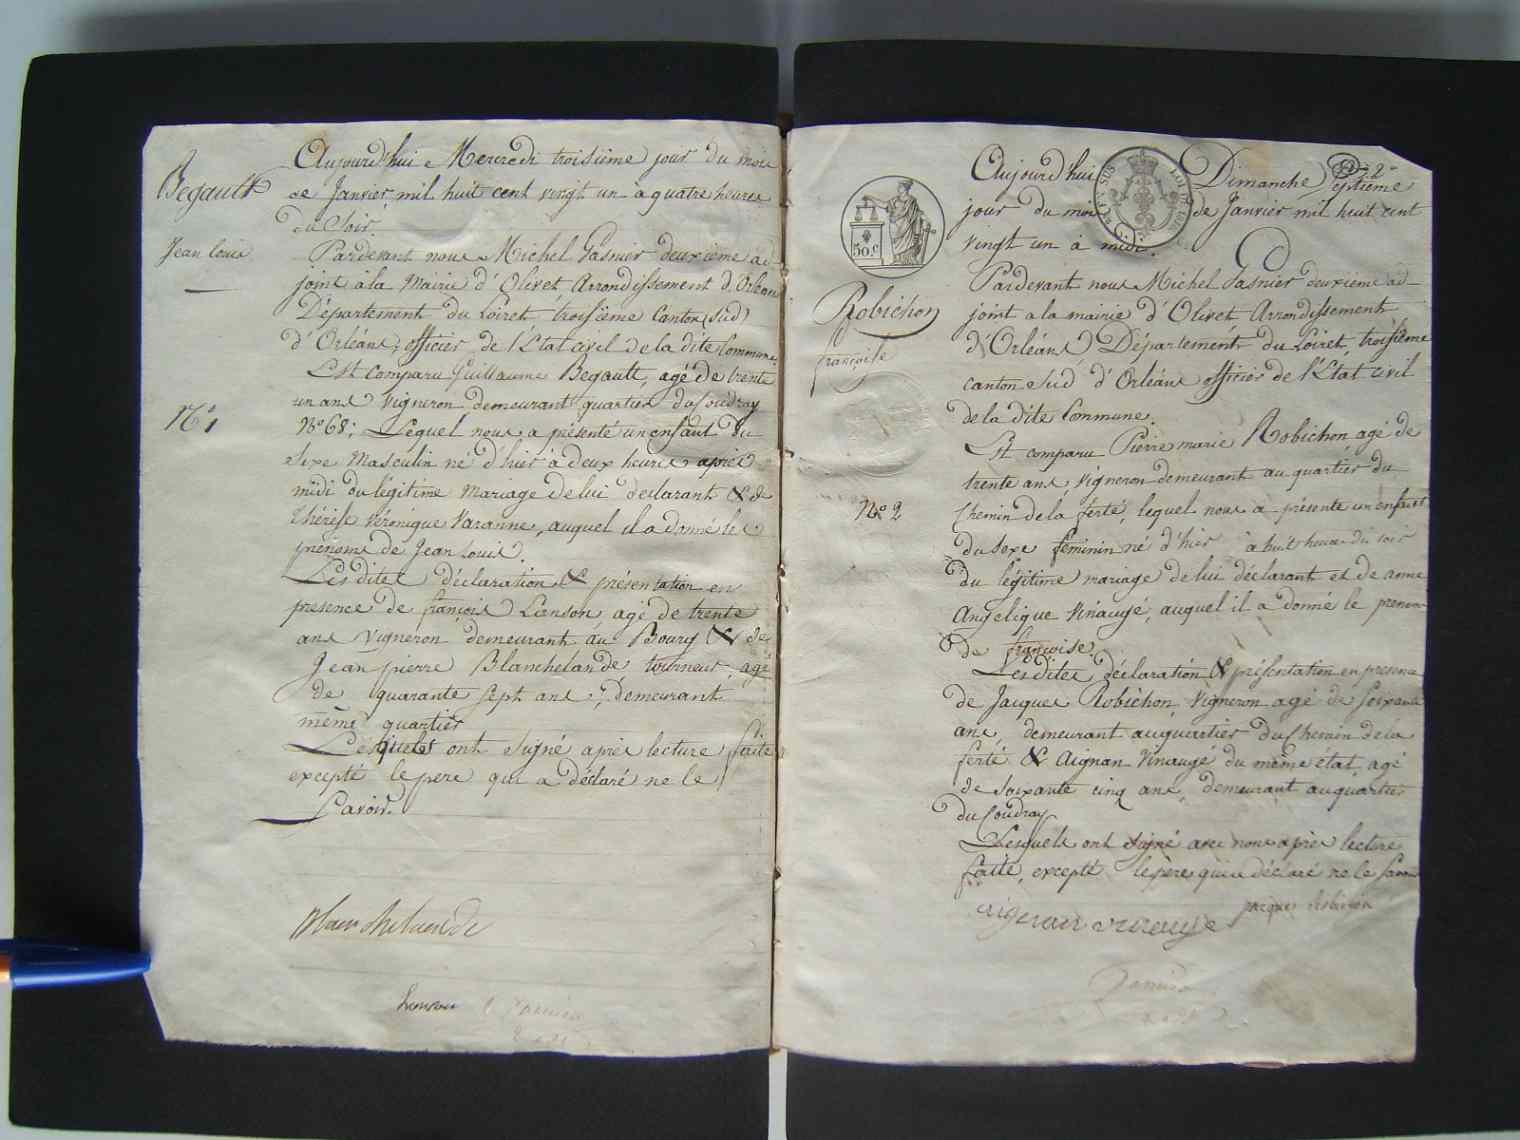 Begault
Jean Louis
N° 1
Aujourd'hui Mercredi troisième jour du mois
de Janvier, mil huit cent vingt un à quatre heures
du Soir.
Pardevant nous Michel Gasnier deuxième ad
joint à la Mairie d'Olivet Arrondissement d'Orléans
Département du Loiret, troisième Canton (sud)
d'Orléans, officier de l'Etat civil de la dite Commune.
Est comparu Guillaume Begault, agé de trente
un ans Vigneron demeurant quartier du Coudray
N° 68; Lequel nous a présenté un enfant du
Sexe Masculin né d'hier à deux heures après
midi du légitime Mariage de lui déclarant & de
Thérèse Véronique Varanne, auquel il a donné les
prénoms de Jean Louis.
Les dites déclaration & présentation en
presence de françois Lenson, agé de trente
ans Vigneron demeurant au Bourg & de
Jean pierre Blanchelande tourneur, agé
de quarante sept ans, demeurant
même quartier
Lesquels ont signé après lecture faite
excepté le pere qui a déclaré ne le
Savoir.
Lenson
2
Robichon
françoise
N° 2
50 c
Aujourd'hui Dimanche Septième
jour du mois de Janvier mil huit cent
vingt un à midi.
Pardevant nous Michel Gasnier deuxième ad-
joint a la mairie d'Olivet Arrondissement
d'Orléans Département du Loiret, troisième
canton Sud d'Orléans officier de l'Etat civil
de la dite Commune.
Est comparu Pierre marie Robichon agé de
trente ans, Vigneron demeurant au quartier du
Chemin de la ferté, lequel nous a présenté un enfant
du Sexe féminin né d'hier à huit heures du soir
du légitime mariage de lui déclarant et de anne
Angelique Vinaugé, auquel il a donné le prenom
de françoise.
Les dites déclaration & présentation en presence
de Jacques Robichon, Vigneron agé de Soixante
ans, demeurant au quartier du Chemin de la
ferté & Aignan Vinaugé du même état, agé
de Soixante cinq ans, demeurant au quartier
du Coudray
Lesquels ont signé avec nous après lecture
faite, excepté le pere qui a déclaré ne le Savoir
jacques Robichon